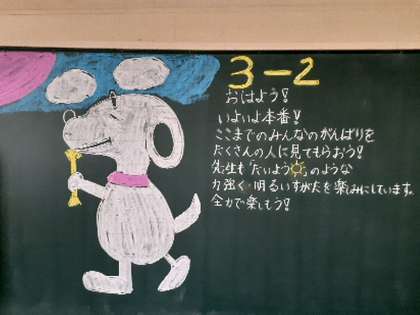 3-2
おはよう!
いよいよ本番!
ここまでのみんなのがんばりを
たくさんの人に見てもらおう!
先生も"たいよう"のような
力強く明るいすがたを楽しみにしています。
全力で楽しもう!